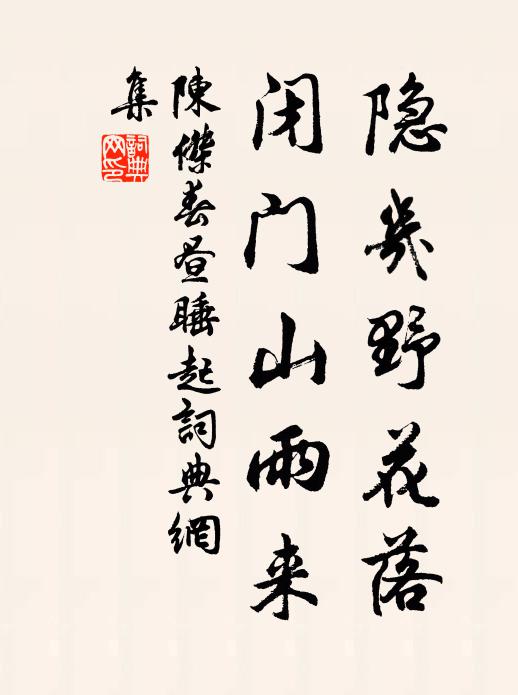 隐幾野花落
闭门山雨来
陳傑春昼睡起詞典網
集
詞典網印